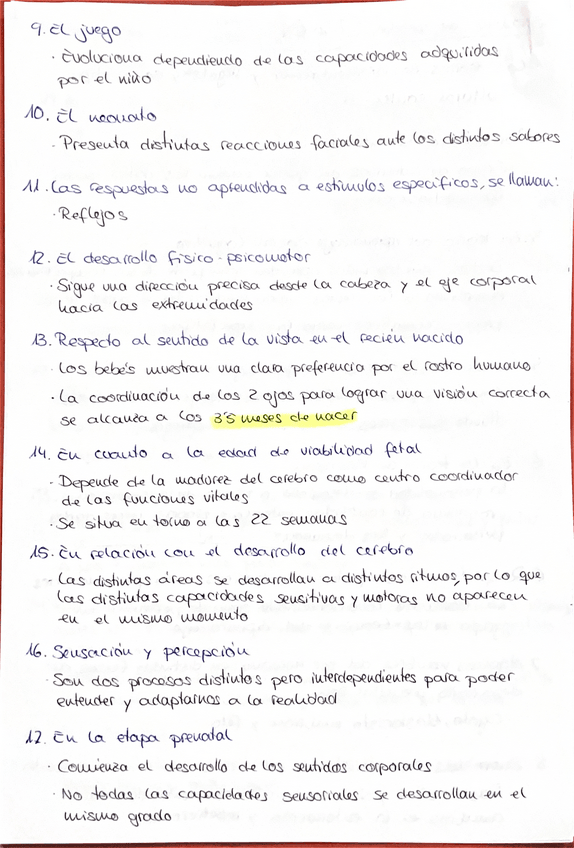 9. El juego
· Evoluciona dependiendo de las capacidades adquiridas
por el niño
10. El neonato
· Presenta distintas reacciones faciales ante los distintos sabores
11. Las respuestas no aprendidas a estimulos especificos, se llaman:
· Reflejos
12. El desarrollo fisico-psicomotor
· Sigue una dirección precisa desde la cabeza y el eje corporal
hacia las extremidades
13. Respecto al sentido de la vista en el recién nacido
· Los bebés muestran una clara preferencia por el rostro humano
· La coordinación de los 2 ojos para lograr una visión correcta
se alcanza a los 3'5 meses de nacer
14. En cuanto a la edad de viabilidad fetal
· Depende de la madurez del cerebro como centro coordinador
de las funciones vitales
· Se situa en torno a las 22 semanas
15. En relación con el desarrollo del cerebro
· Las distintas áreas se desarrollan a distintos ritmos, por lo que
las distintas capacidades sensitivas y motoras no aparecen
en el mismo momento
16. Sensación y percepción
· Son dos procesos distintos pero interdependientes para poder
entender y adaptarnos a la realidad
17. En la etapa prenatal
· Comienza el desarrollo de los sentidos corporales
· No todas las capacidades sensoriales se desarrollan en el
mismo grado